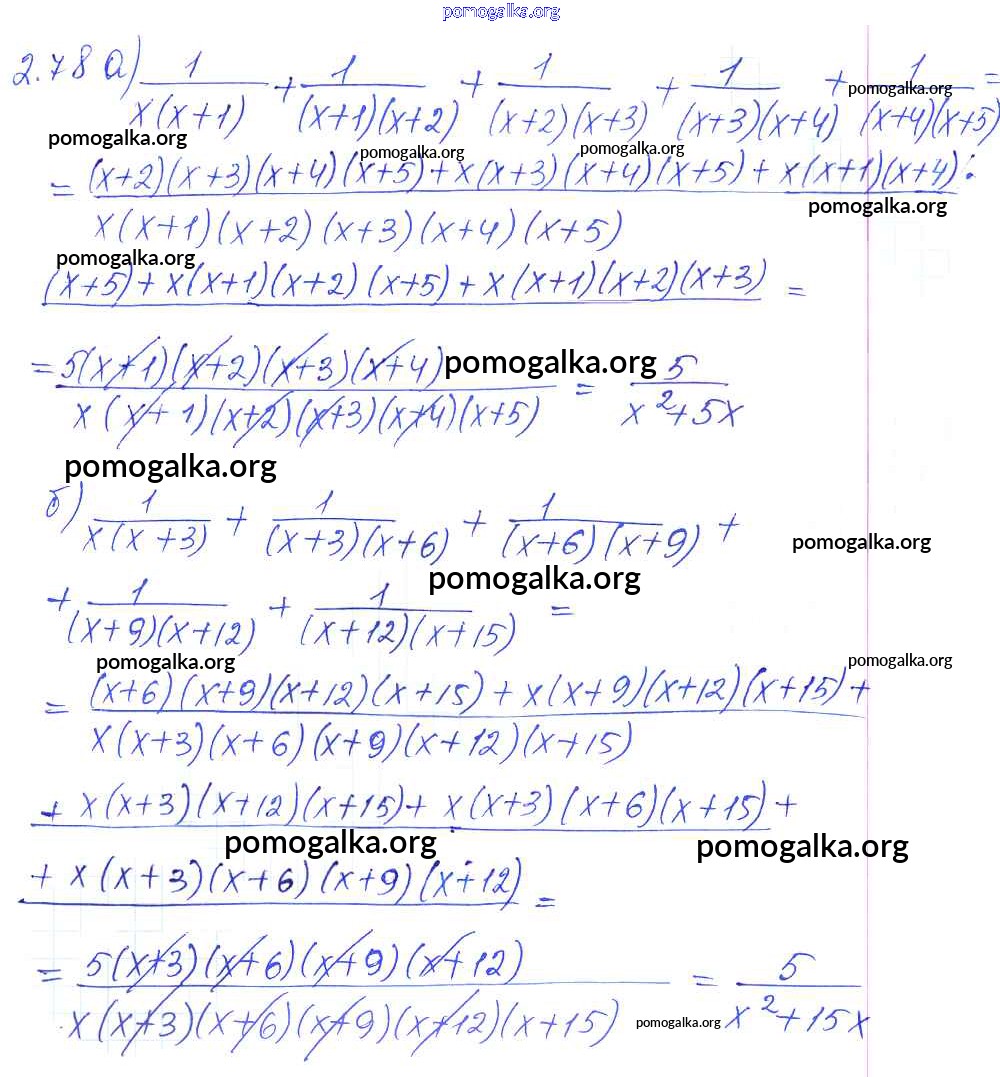 pomogalka.org
2.78 а) 1/(x(x+1)) + 1/((x+1)(x+2)) + 1/((x+2)(x+3)) + 1/((x+3)(x+4)) + 1/((x+4)(x+5)) =
pomogalka.org
pomogalka.org
pomogalka.org
pomogalka.org
= (x+2)(x+3)(x+4)(x+5)+x(x+3)(x+4)(x+5)+x(x+1)(x+4).
x(x+1)(x+2)(x+3)(x+4)(x+5)
pomogalka.org
pomogalka.org
(x+5)+x(x+1)(x+2)(x+5)+x(x+1)(x+2)(x+3) =
= 5(x+1)(x+2)(x+3)(x+4) / x(x+1)(x+2)(x+3)(x+4)(x+5) = 5/(x²+5x)
pomogalka.org
pomogalka.org
б) 1/(x(x+3)) + 1/((x+3)(x+6)) + 1/((x+6)(x+9)) +
pomogalka.org
pomogalka.org
+ 1/((x+9)(x+12)) + 1/((x+12)(x+15)) =
pomogalka.org
pomogalka.org
= (x+6)(x+9)(x+12)(x+15)+x(x+9)(x+12)(x+15)+
x(x+3)(x+6)(x+9)(x+12)(x+15)
+ x(x+3)(x+12)(x+15)+x(x+3)(x+6)(x+15)+
pomogalka.org
pomogalka.org
+ x(x+3)(x+6)(x+9)(x+12) =
= 5(x+3)(x+6)(x+9)(x+12) / x(x+3)(x+6)(x+9)(x+12)(x+15) = 5/(x²+15x)
pomogalka.org